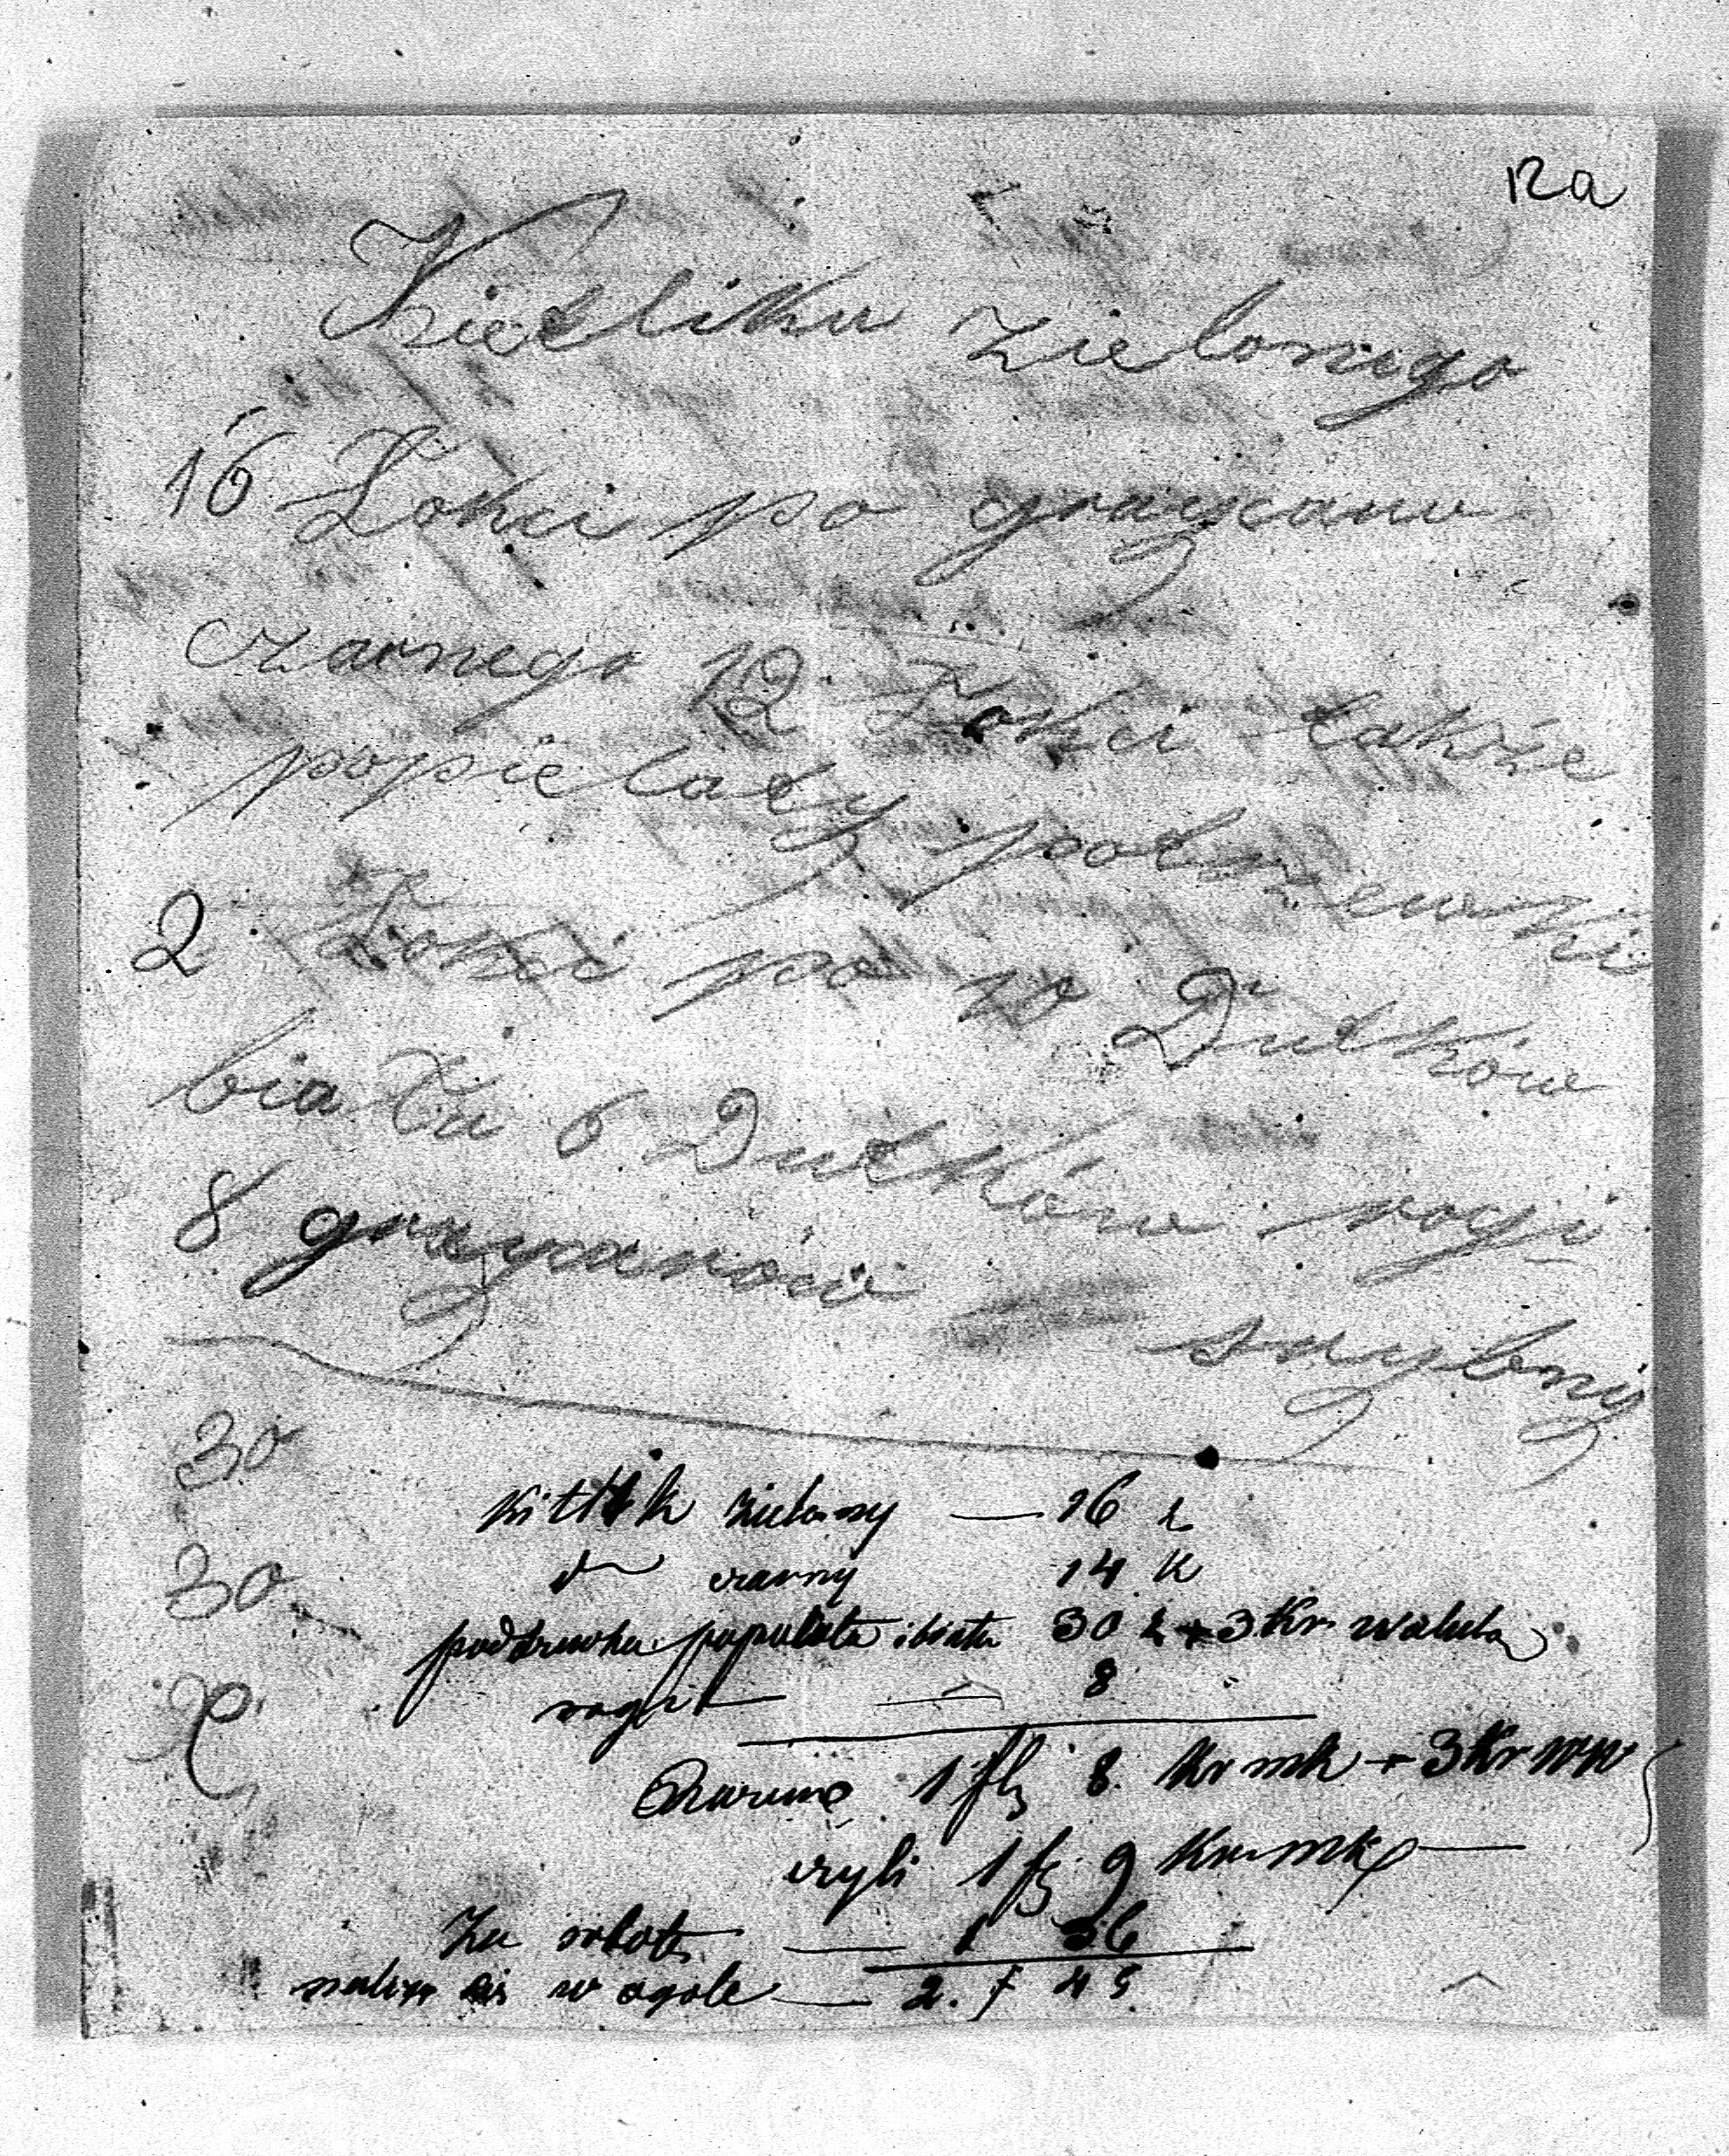 12a
Kietliku zielonego
16 Łokci po graycaru
czarnego 12 Łokci takoże
popielaty podszewki
2 Łokci po 10 Dutków
biały 6 Dutków rogi
8 graycarów
30
kitlik zielony — 16 k
dto czarny 14 k
30
podszewka popielata i biała 30 k + 3 Kr waluta
rogi — — 8
Razem 1 fl 8 Kr mk + 3 Kr ww
czyli 1 fl 9 Kr mk —
Za robotę — 1 36
należy się w ogole — 2. f 45